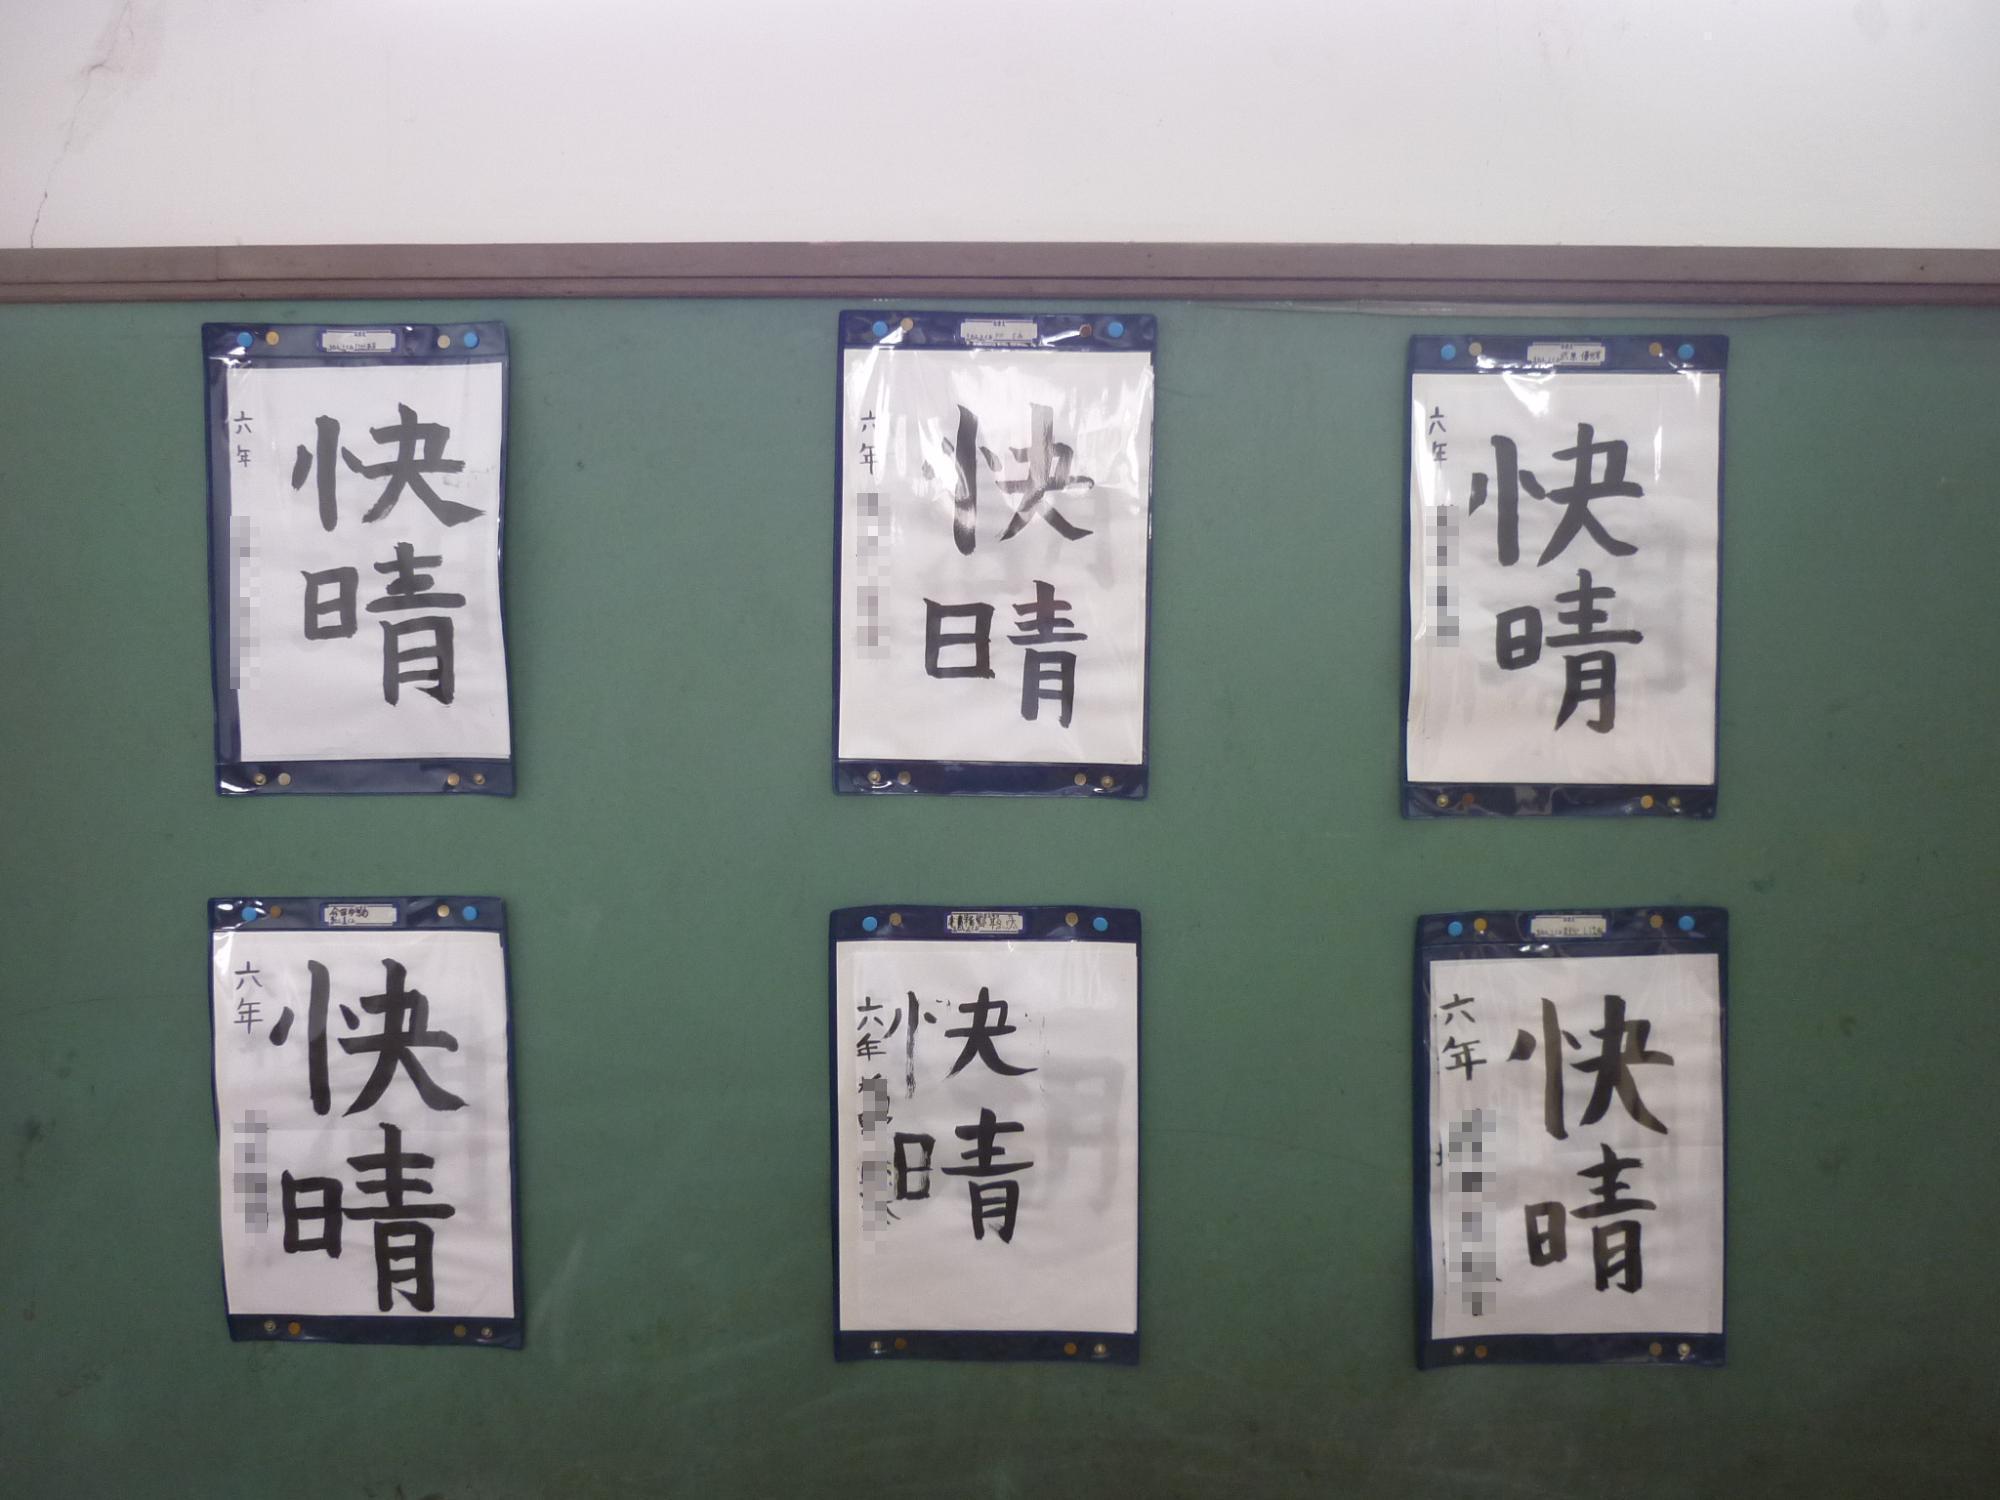 快晴
六年
快晴
六年
快晴
六年
快晴
六年
快晴
六年
快晴
六年